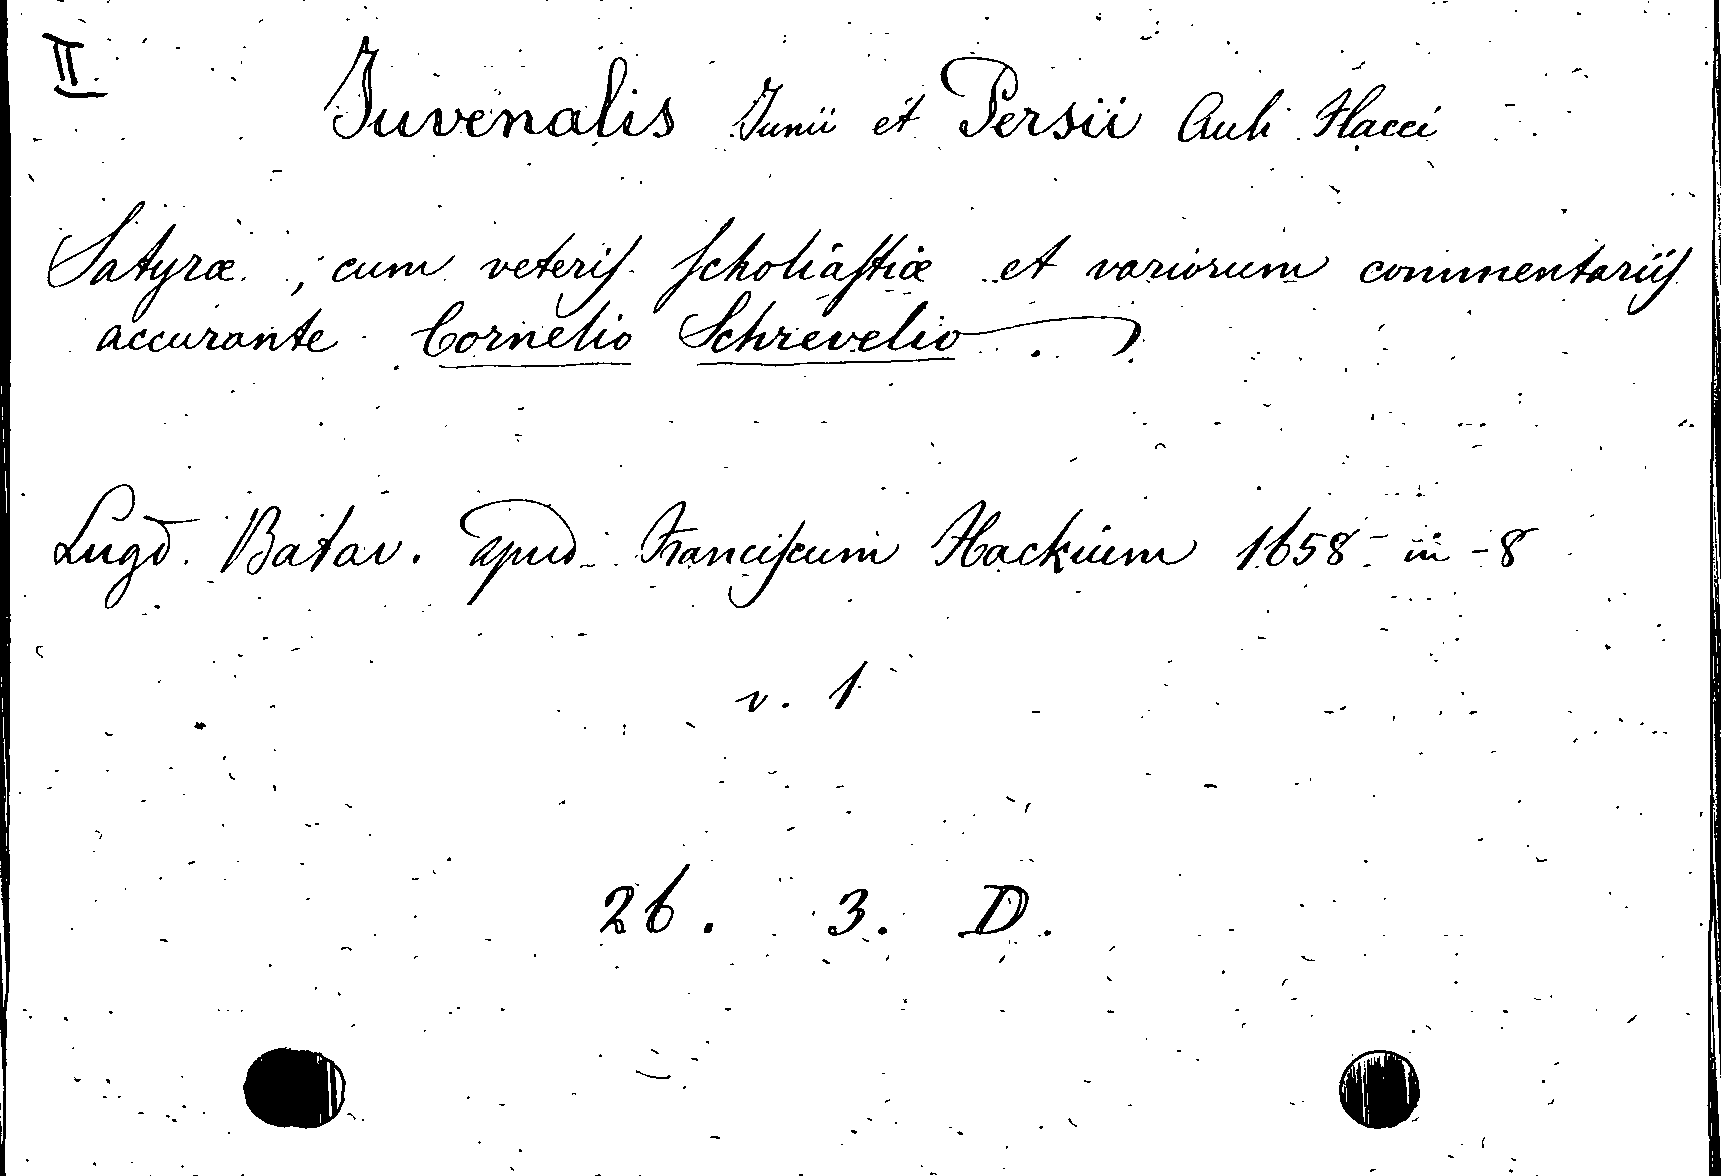 II
Juvenalis Junii et Persii Auli Flacci
Satyræ, cum veteriſ ſcholiaſtiæ et variorum commentariiſ
accurante Cornelio Schrevelio.
Lugd. Batav. apud Franciſcum Hackium 1658 in-8
v. 1
26. 3. D.